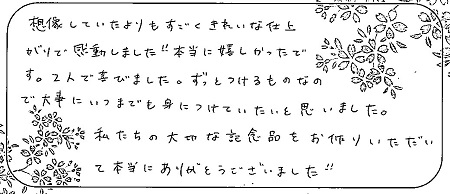 想像していたよりもすごくきれいな仕上
がりで感動しました!!本当に嬉しかったで
す。2人で喜びました。ずっとつけるものなの
で大事にいつまでも身につけていたいと思いました。
私たちの大切な記念品をお作りいただい
て本当にありがとうございました!!